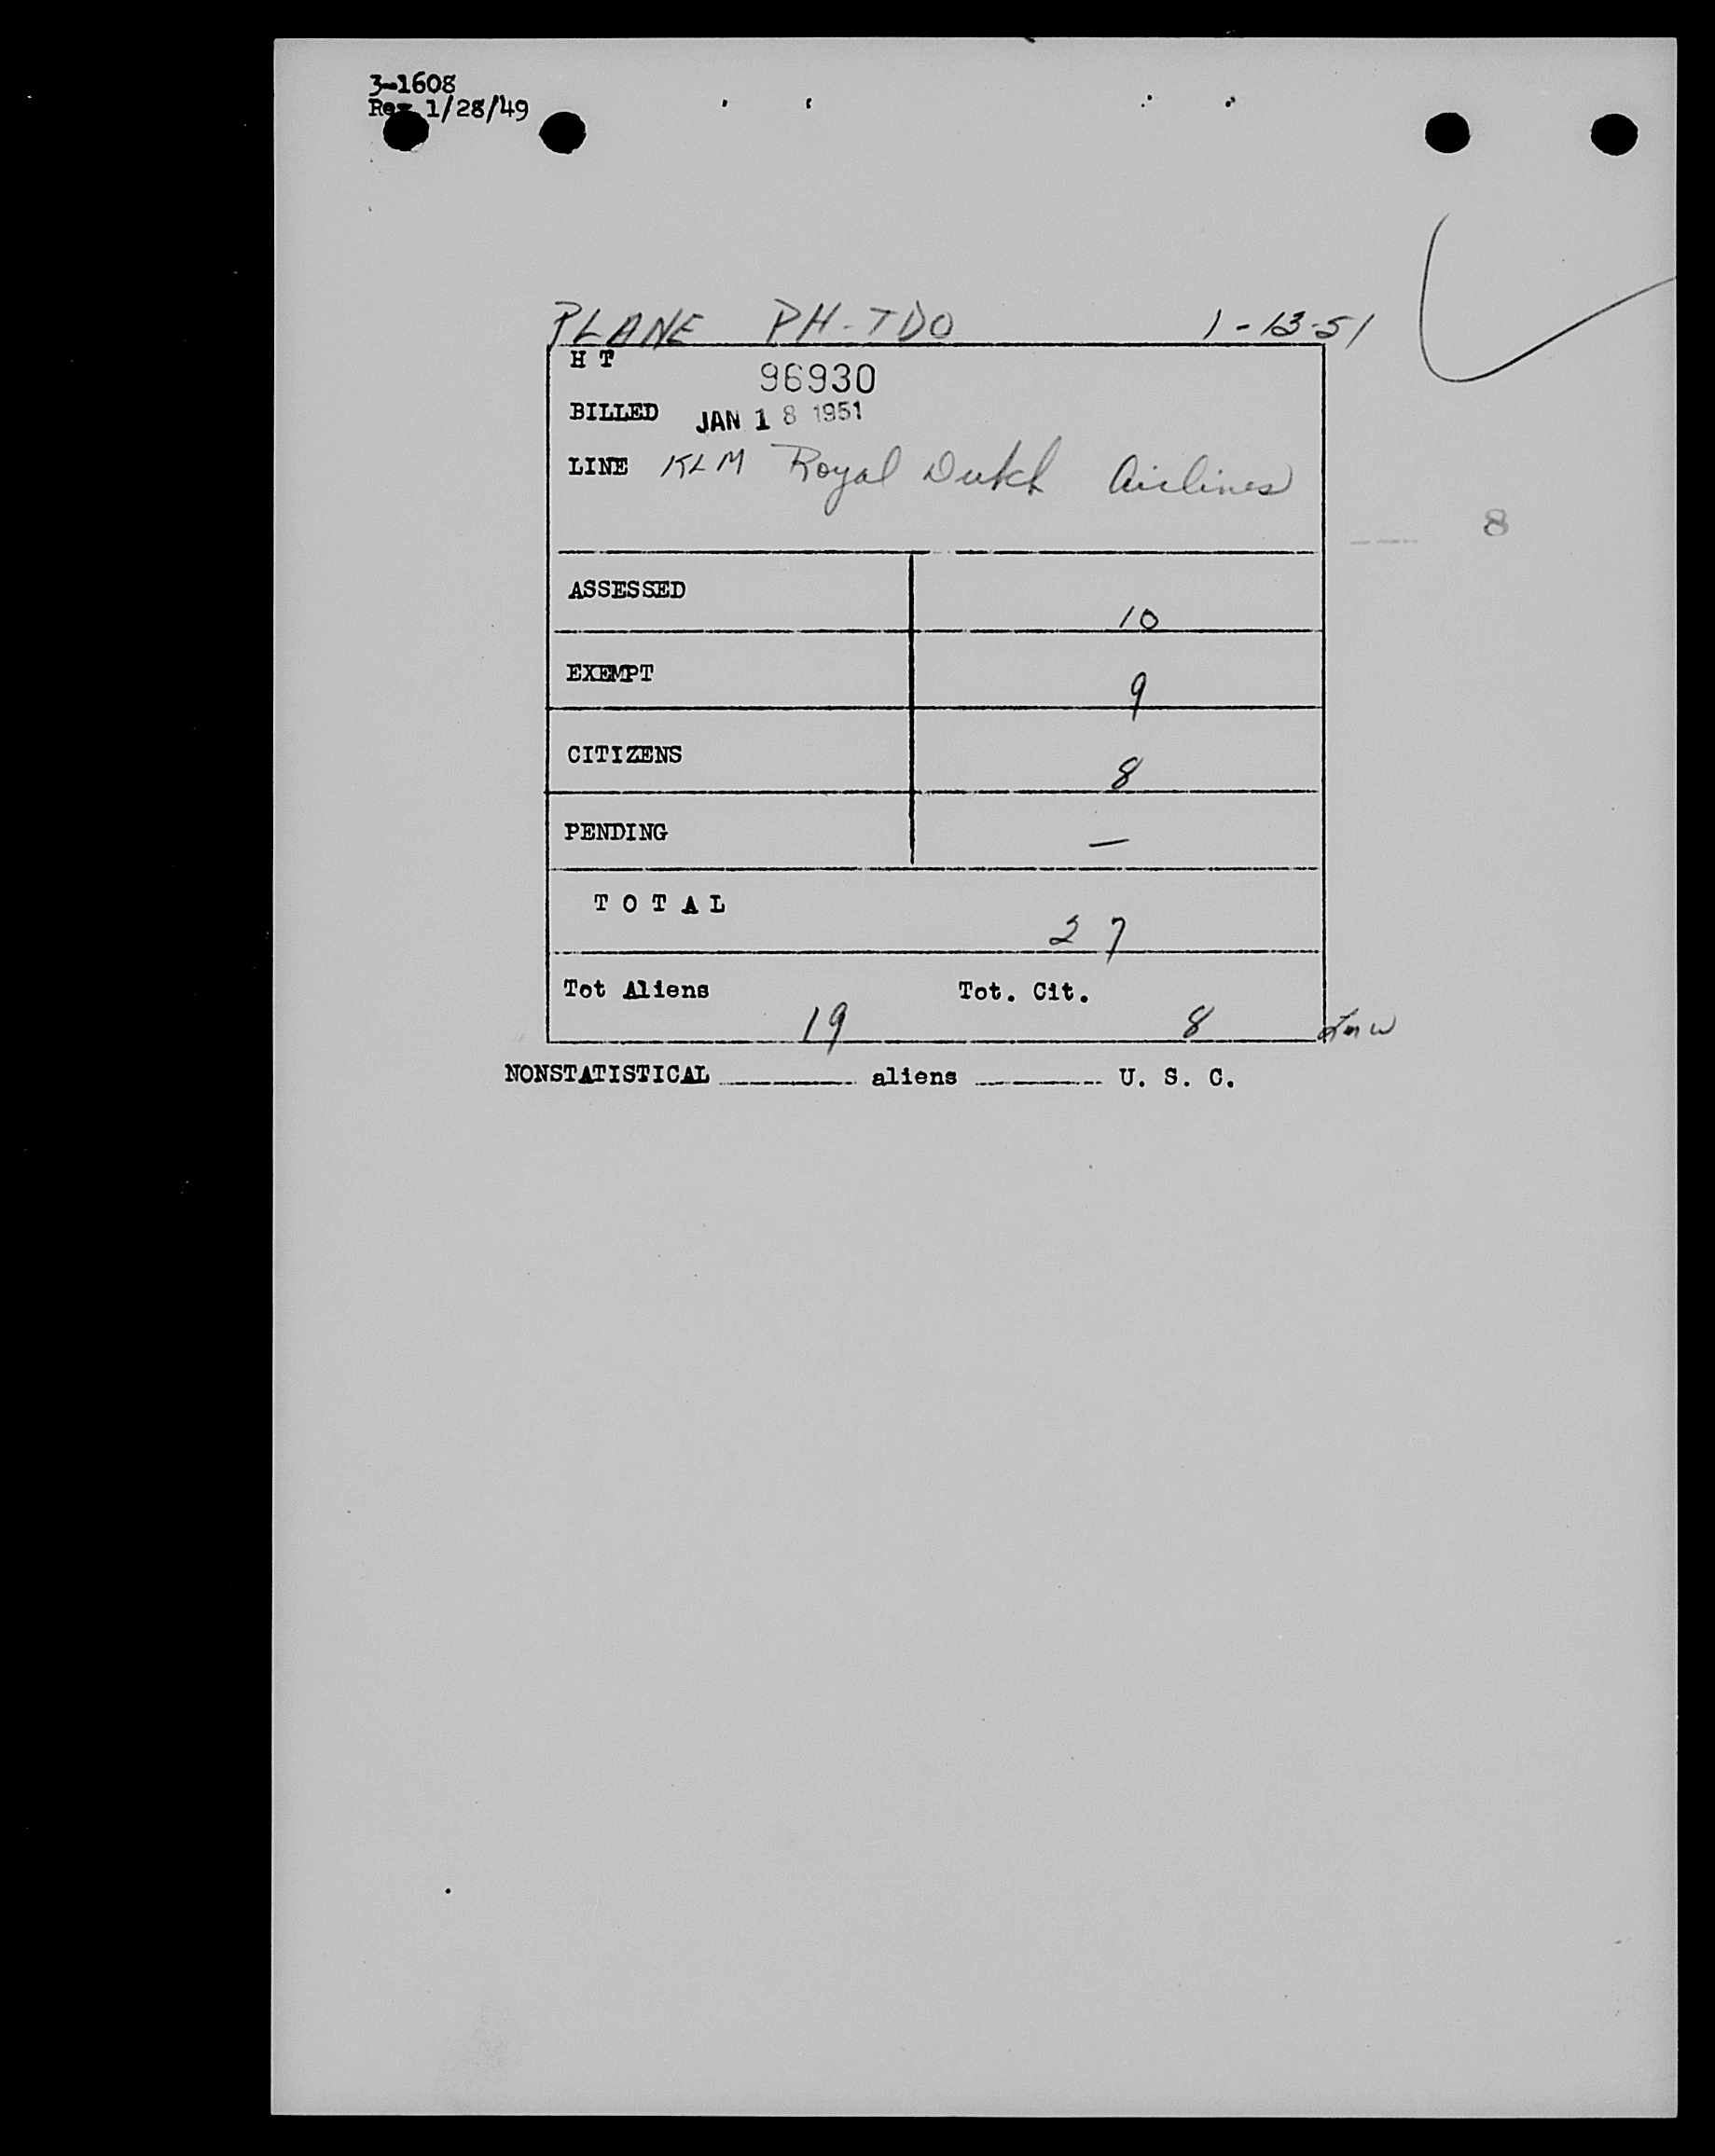 3-1608
Rev 1/28/49
PLANE PH-TDO 1-13-51
H T
96930
BILLED JAN 18 1951
LINE KLM Royal Dutch Airlines
8
ASSESSED 10
EXEMPT 9
CITIZENS 8
PENDING —
TOTAL 27
Tot Aliens 19 Tot. Cit. 8
NONSTATISTICAL ________ aliens ________ U. S. C.